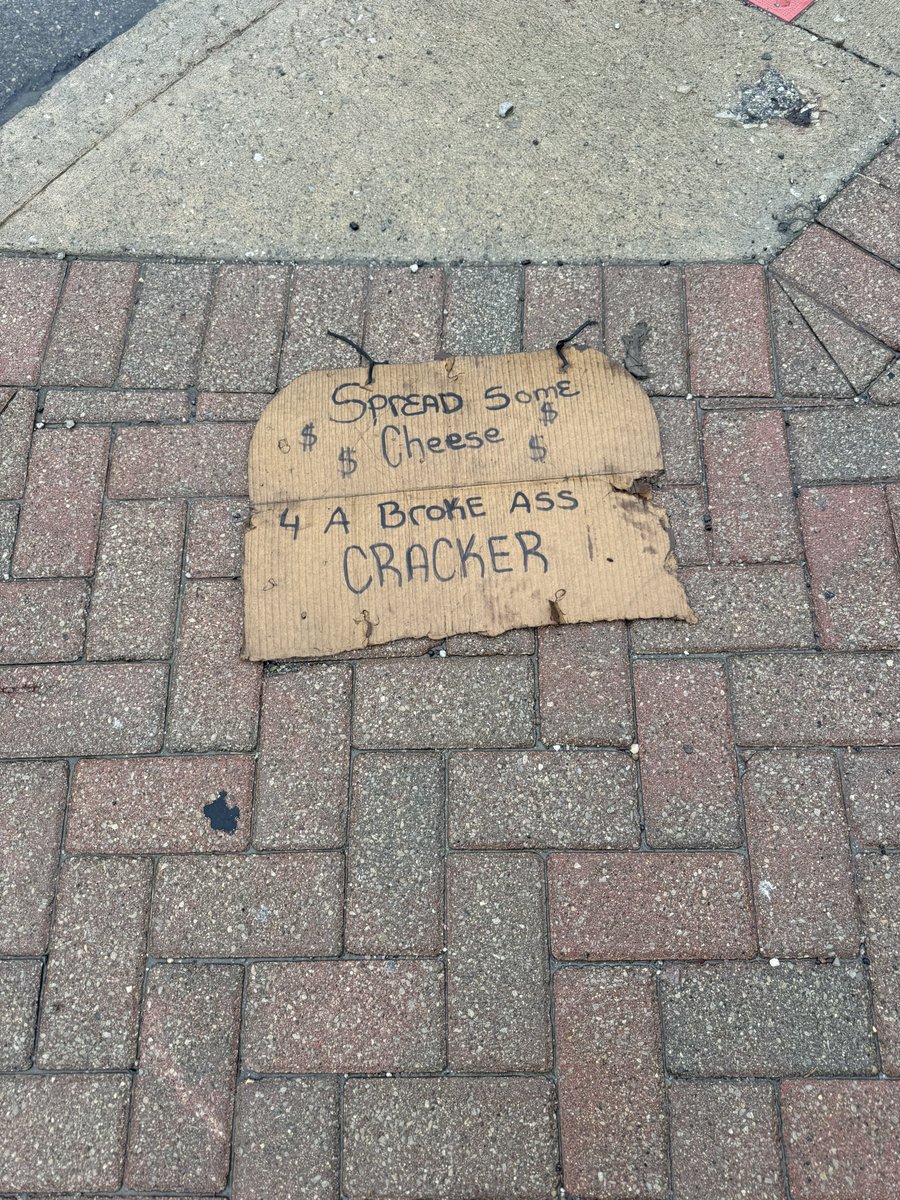 SPrEAD Some
$ $ Cheese $ $
4 A BroKE ASS
CRACKER